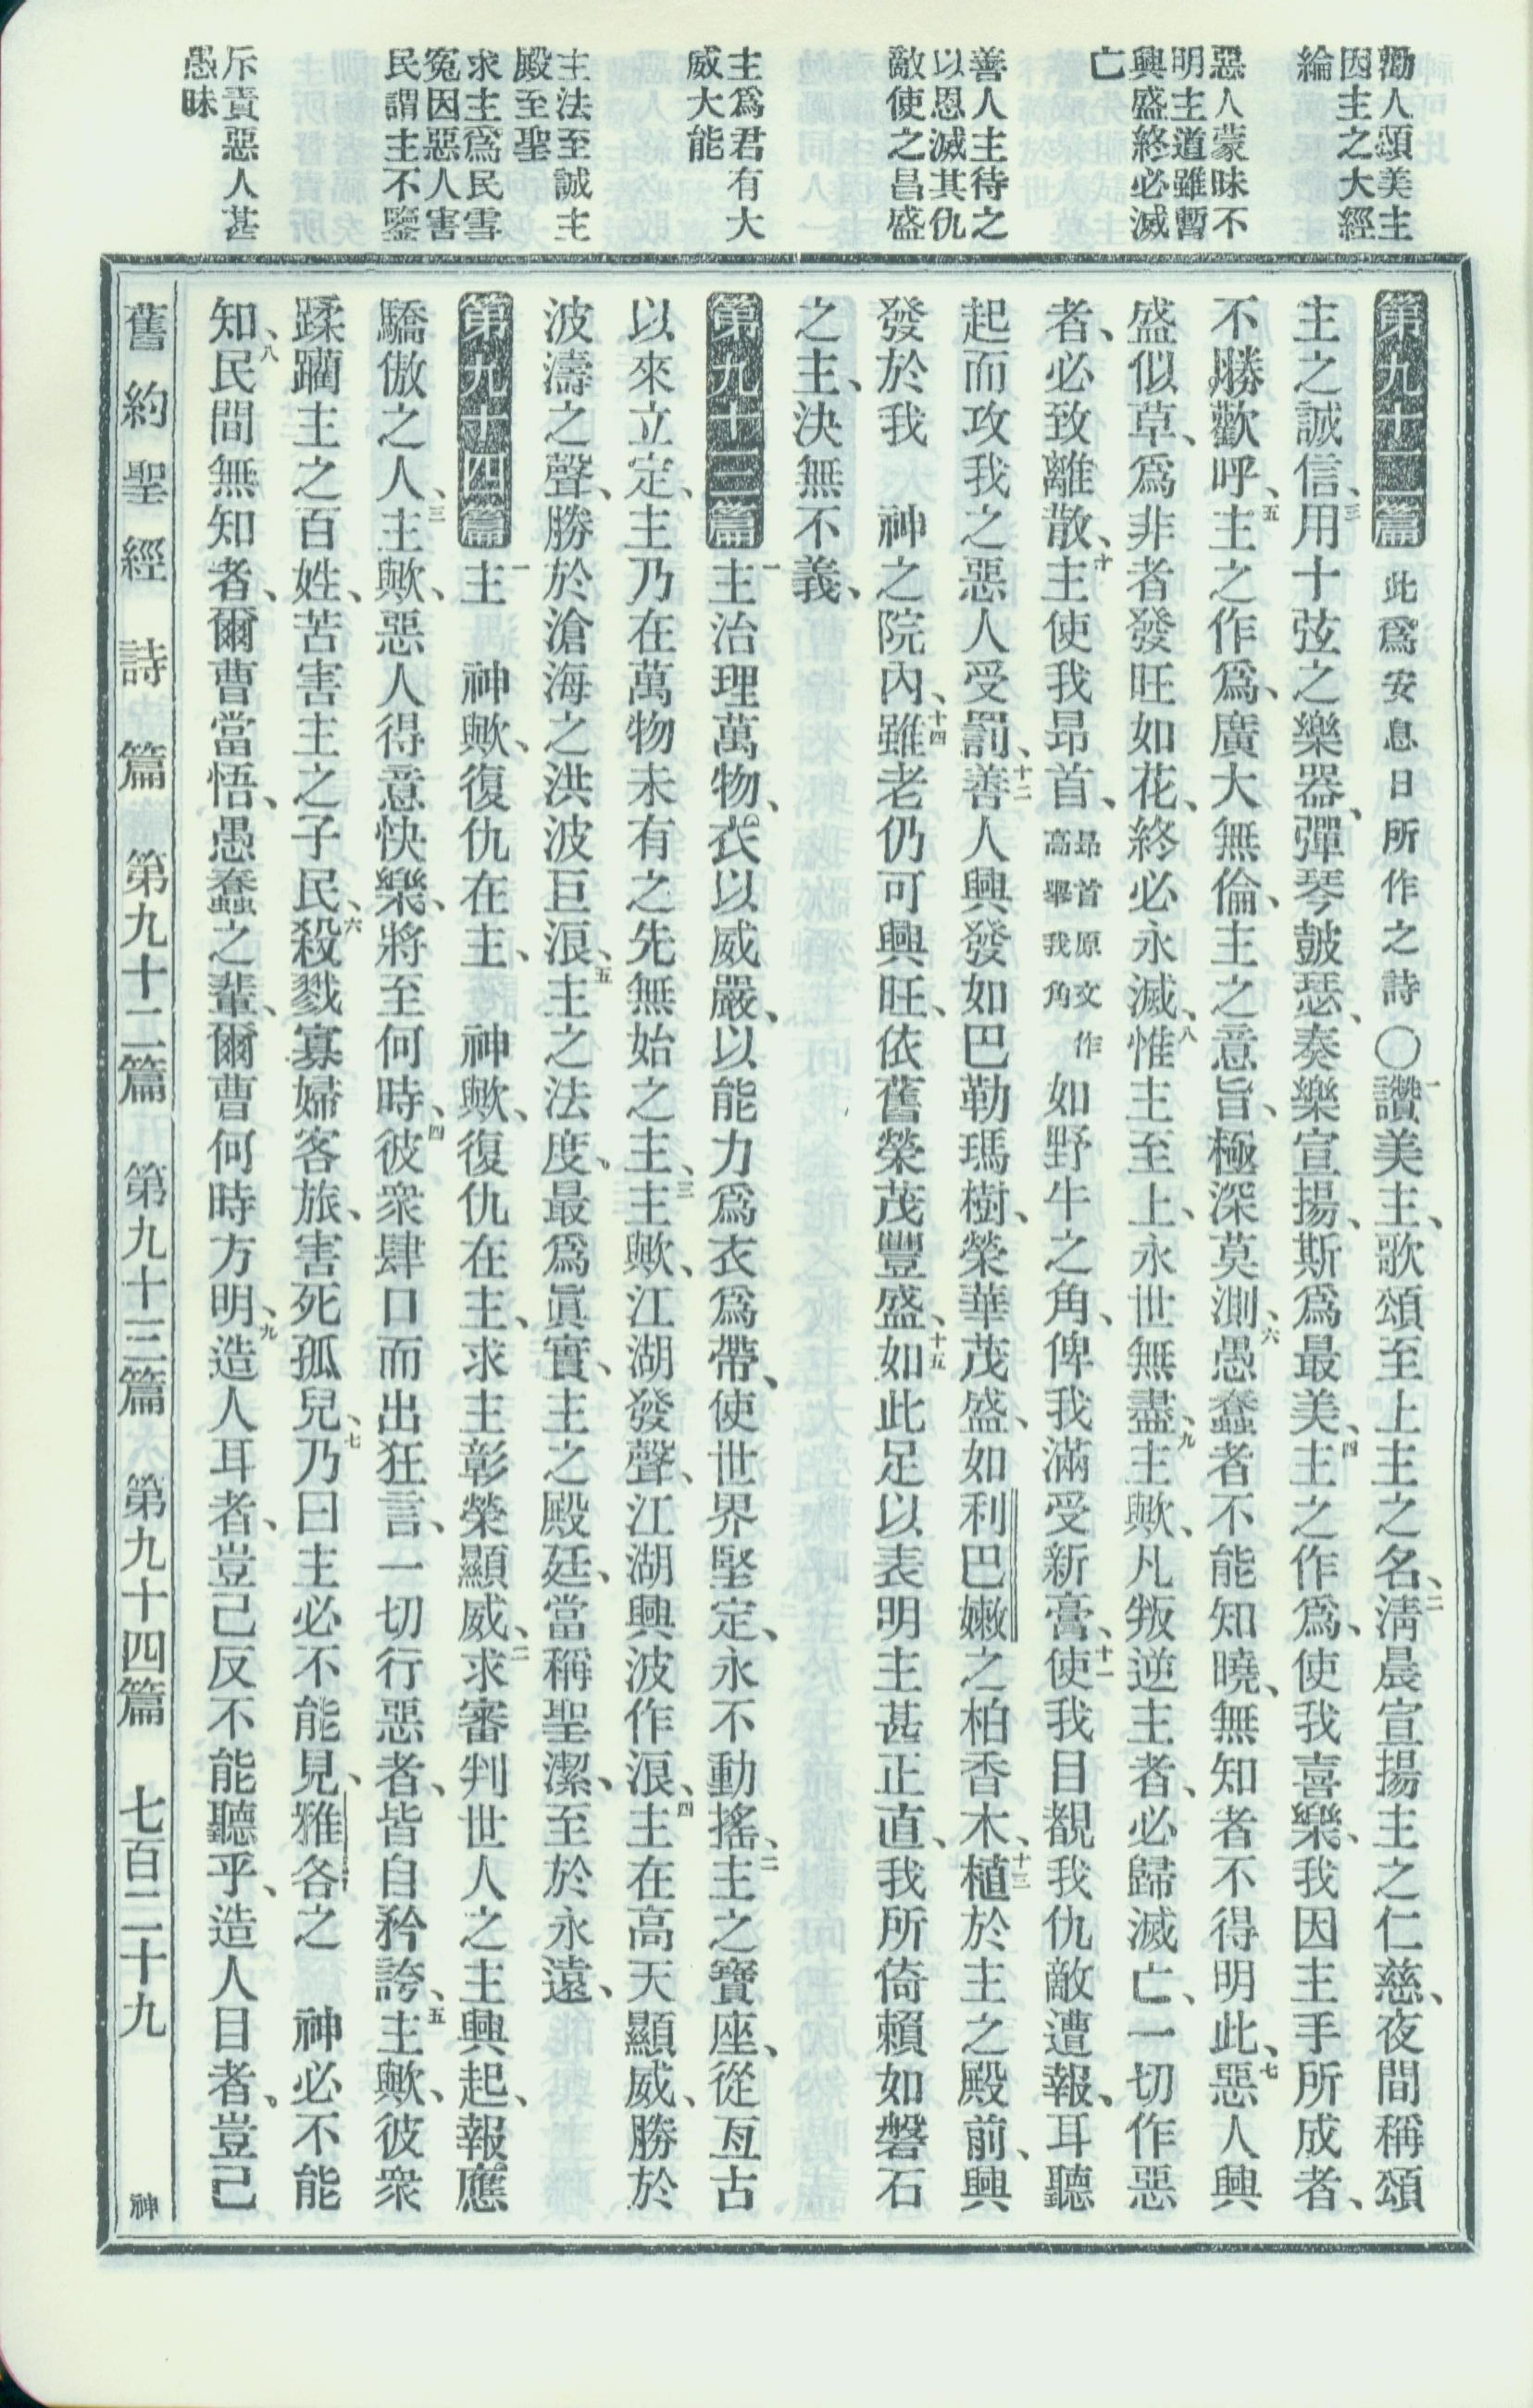 勸人頌美主
因主之大經
綸
惡人蒙昧不
明主道雖暫
興盛終必滅
亡
善人主待之
以恩滅其仇
敵使之昌盛
主爲君有大
威大能
主法至誠主
殿至聖
求主爲民雪
冤因惡人害
民謂主不鑒
斥責惡人甚
愚昧
第九十二篇 此爲安息日所作之詩 〇一讚美主、歌頌至上主之名、二淸晨宣揚主之仁慈、夜間稱頌
主之誠信、三用十弦之樂器、彈琴鼓瑟、奏樂宣揚、斯爲最美、四主之作爲、使我喜樂、我因主手所成者、
不勝歡呼、五主之作爲、廣大無倫、主之意旨、極深莫測、六愚蠢者不能知曉、無知者不得明此、七惡人興
盛似草、爲非者發旺如花、終必永滅、八惟主至上、永世無盡、九主歟、凡叛逆主者、必歸滅亡、一切作惡
者、必致離散、十主使我昂首、昂首原文作高舉我角如野牛之角、俾我滿受新膏、十一使我目覩我仇敵遭報、耳聽
起而攻我之惡人受罰、十二善人興發如巴勒瑪樹、榮華茂盛、如利巴嫩之柏香木、十三植於主之殿前、興
發於我　神之院內、十四雖老仍可興旺、依舊榮茂豐盛、十五如此足以表明主甚正直、我所倚賴如磐石
之主、決無不義、
第九十三篇 一主治理萬物、衣以威嚴、以能力爲衣爲帶、使世界堅定、永不動搖、二主之寶座、從亙古
以來立定、主乃在萬物未有之先無始之主、三主歟、江湖發聲、江湖興波作浪、四主在高天顯威、勝於
波濤之聲、勝於滄海之洪波巨浪、五主之法度、最爲眞實、主之殿廷、當稱聖潔、至於永遠、
第九十四篇 一主　神歟、復仇在主、　神歟、復仇在主、求主彰榮顯威、二求審判世人之主興起、報應
驕傲之人、三主歟、惡人得意快樂、將至何時、四彼衆肆口而出狂言、一切行惡者、皆自矜誇、五主歟、彼衆
蹂躪主之百姓、苦害主之子民、六殺戮寡婦客旅、害死孤兒、七乃曰主必不能見、雅各之　神必不能
知、八民間無知者、爾曹當悟、愚蠢之輩、爾曹何時方明、九造人耳者、豈己反不能聽乎、造人目者、豈己
舊約聖經 詩篇 第九十二篇 第九十三篇 第九十四篇 七百二十九 神